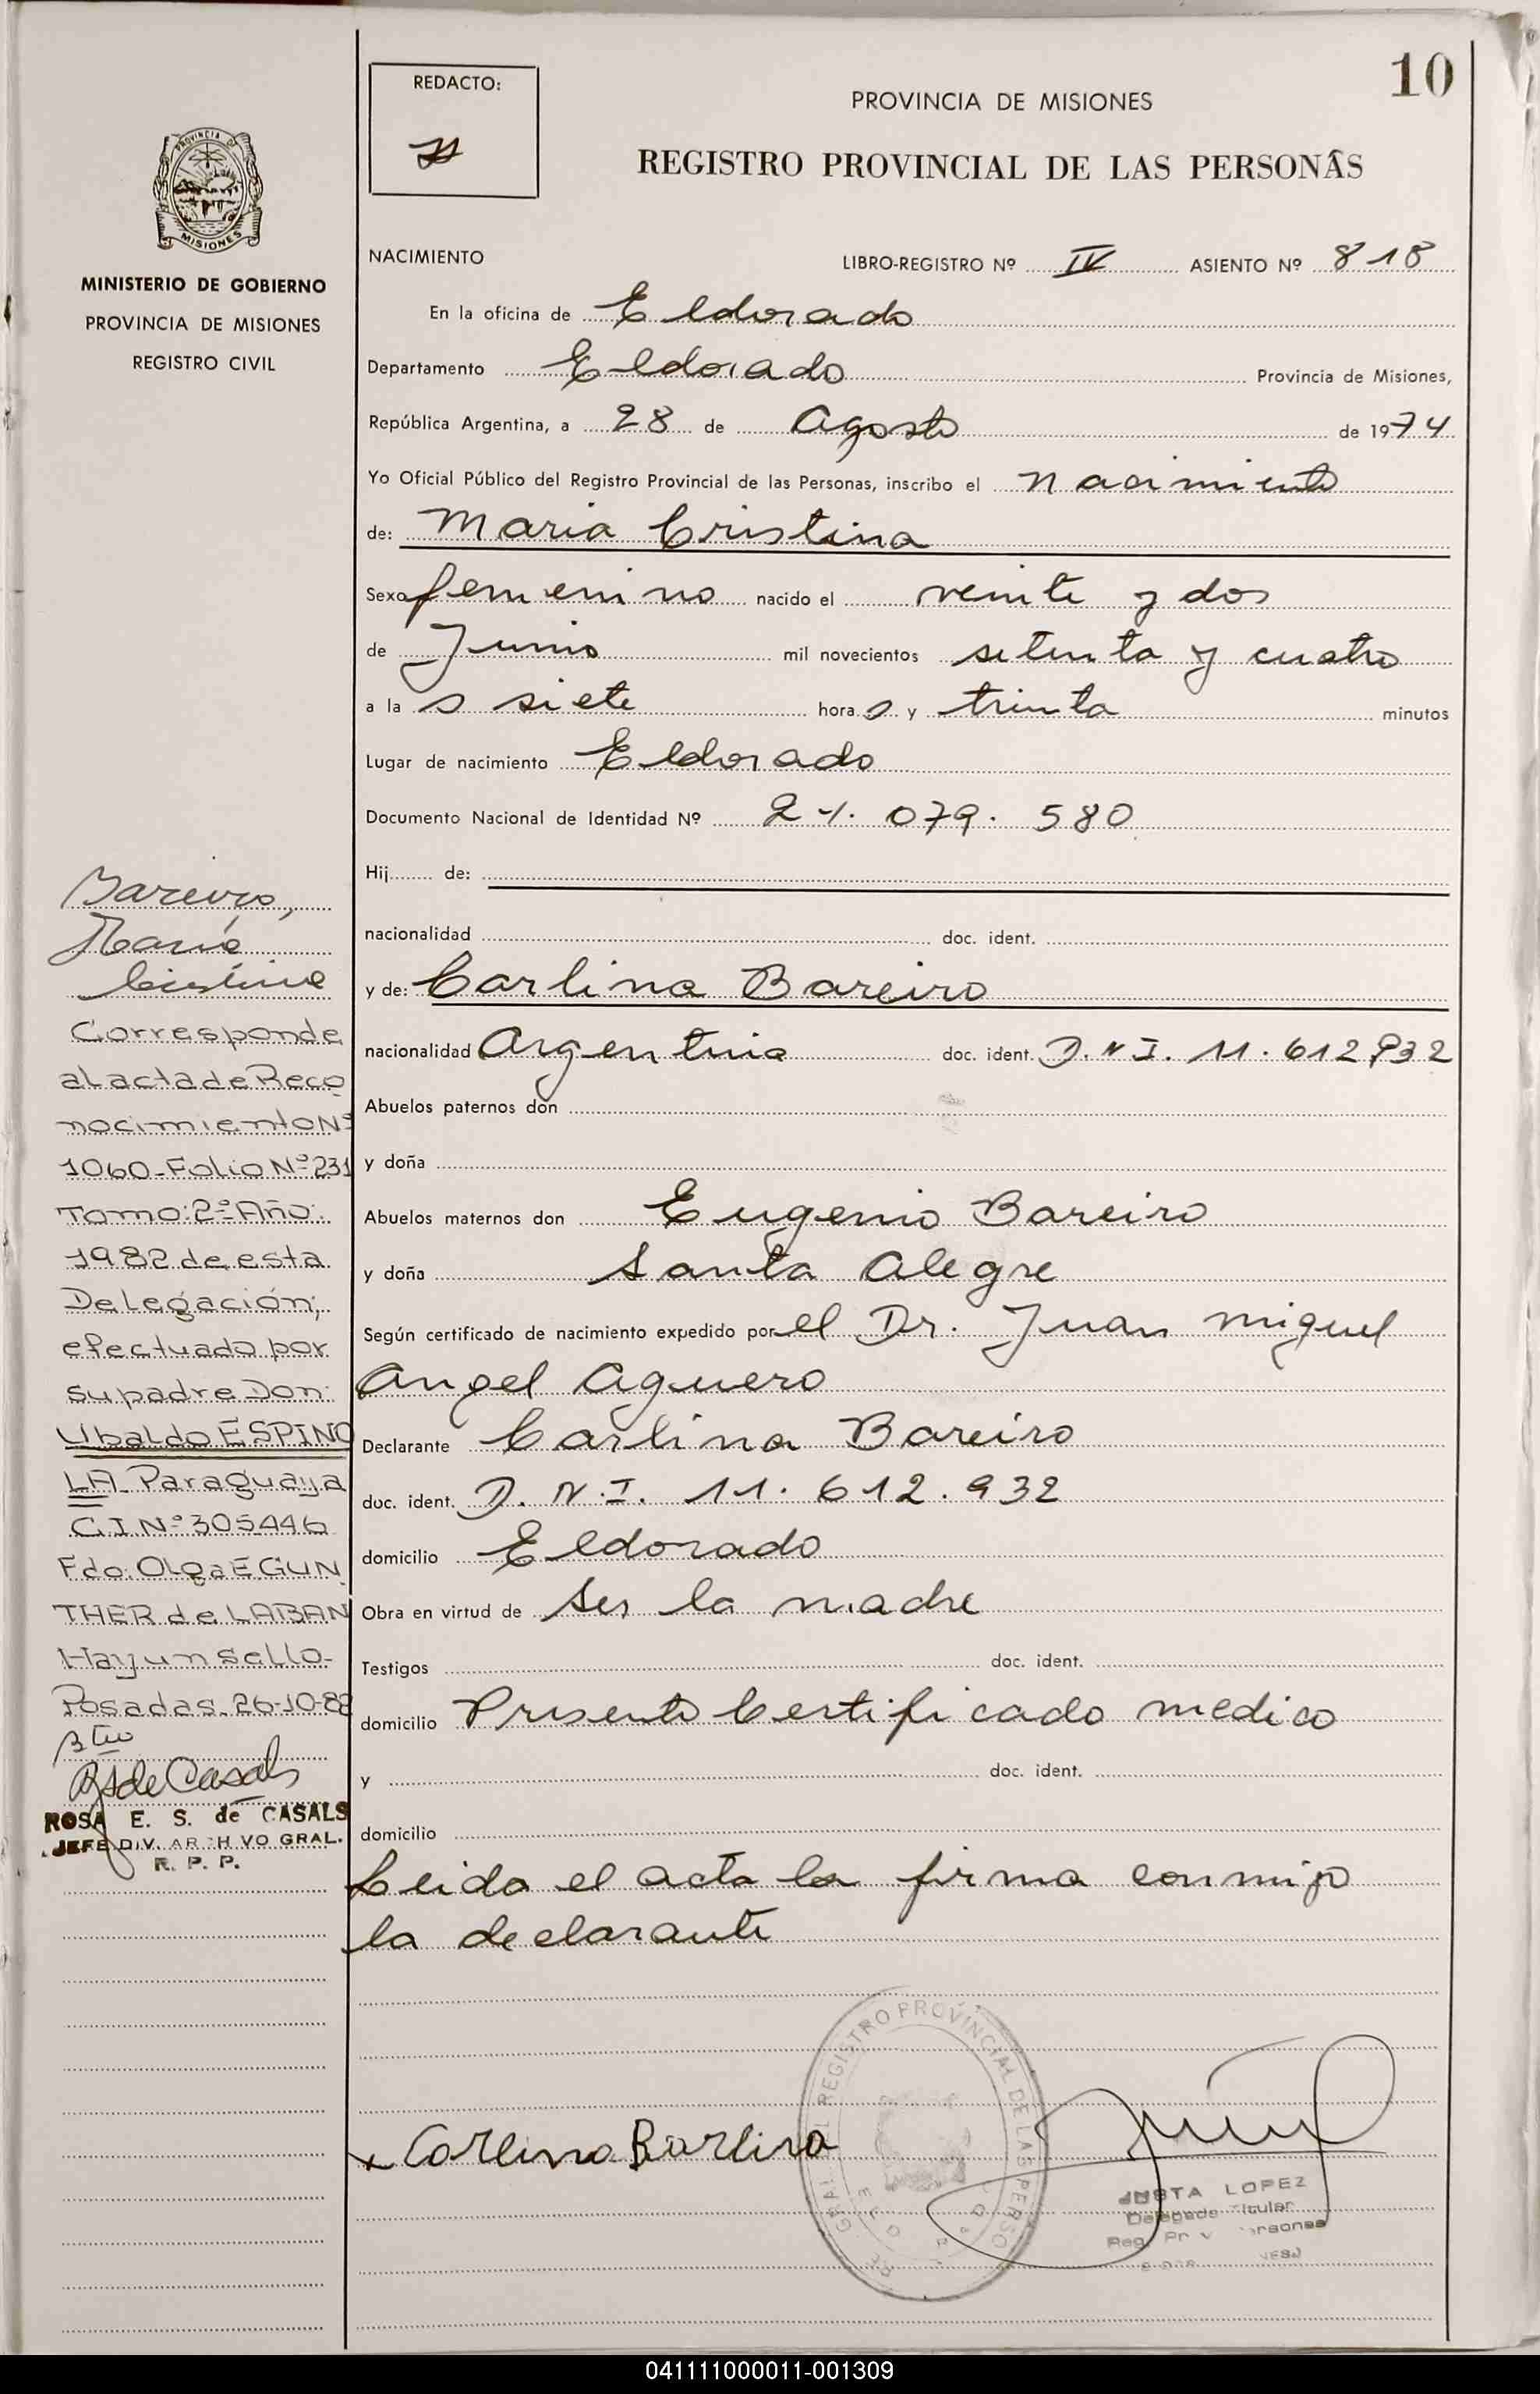 10
REDACTO:
PROVINCIA DE MISIONES
REGISTRO PROVINCIAL DE LAS PERSONAS
PROVINCIA DE
MISIONES
MINISTERIO DE GOBIERNO
PROVINCIA DE MISIONES
REGISTRO CIVIL
NACIMIENTO LIBRO-REGISTRO Nº IV ASIENTO Nº 818
En la oficina de Eldorado
Departamento Eldorado Provincia de Misiones,
República Argentina, a 28 de Agosto de 1974
Yo Oficial Público del Registro Provincial de las Personas, inscribo el nacimiento
de: Maria Cristina
Sexo femenino nacido el veinte y dos
de Junio mil novecientos setenta y cuatro
a la s siete hora s y treinta minutos
Lugar de nacimiento Eldorado
Documento Nacional de Identidad Nº 24.079.580
Hij de:
nacionalidad doc. ident.
y de: Carlina Bareiro
nacionalidad Argentina doc. ident. D.N.I. 11.612.932
Abuelos paternos don
y doña
Abuelos maternos don Eugenio Bareiro
y doña Santa Alegre
Según certificado de nacimiento expedido por el Dr. Juan Miguel
Angel Aguero
Declarante Carlina Bareiro
doc. ident. D.N.I. 11.612.932
domicilio Eldorado
Obra en virtud de ser la madre
Testigos doc. ident.
domicilio Presento Certificado medico
y doc. ident.
domicilio
Leida el acta la firma conmigo
la declarante
Bareiro,
María
Cristina
Corresponde
al acta de Reco
nocimiento Nº
1060-Folio Nº 231
Tomo: 2º Año:
1982 de esta
Delegación;
efectuado por
su padre Don:
Ubaldo ESPINO
LA Paraguaya
C.I.Nº 305446
Fdo: Olga E GUN
THER de LABAN
Hay un sello-
Posadas. 26-10-82
RSdeCasals
ROSA E. S. de CASALS
JEFE DIV. ARCHIVO GRAL.
R. P. P.
x Carlina Bareiro
REGISTRO PROVINCIAL DE LAS PERSO
JUSTA LOPEZ
Delegada Titular
041111000011-001309